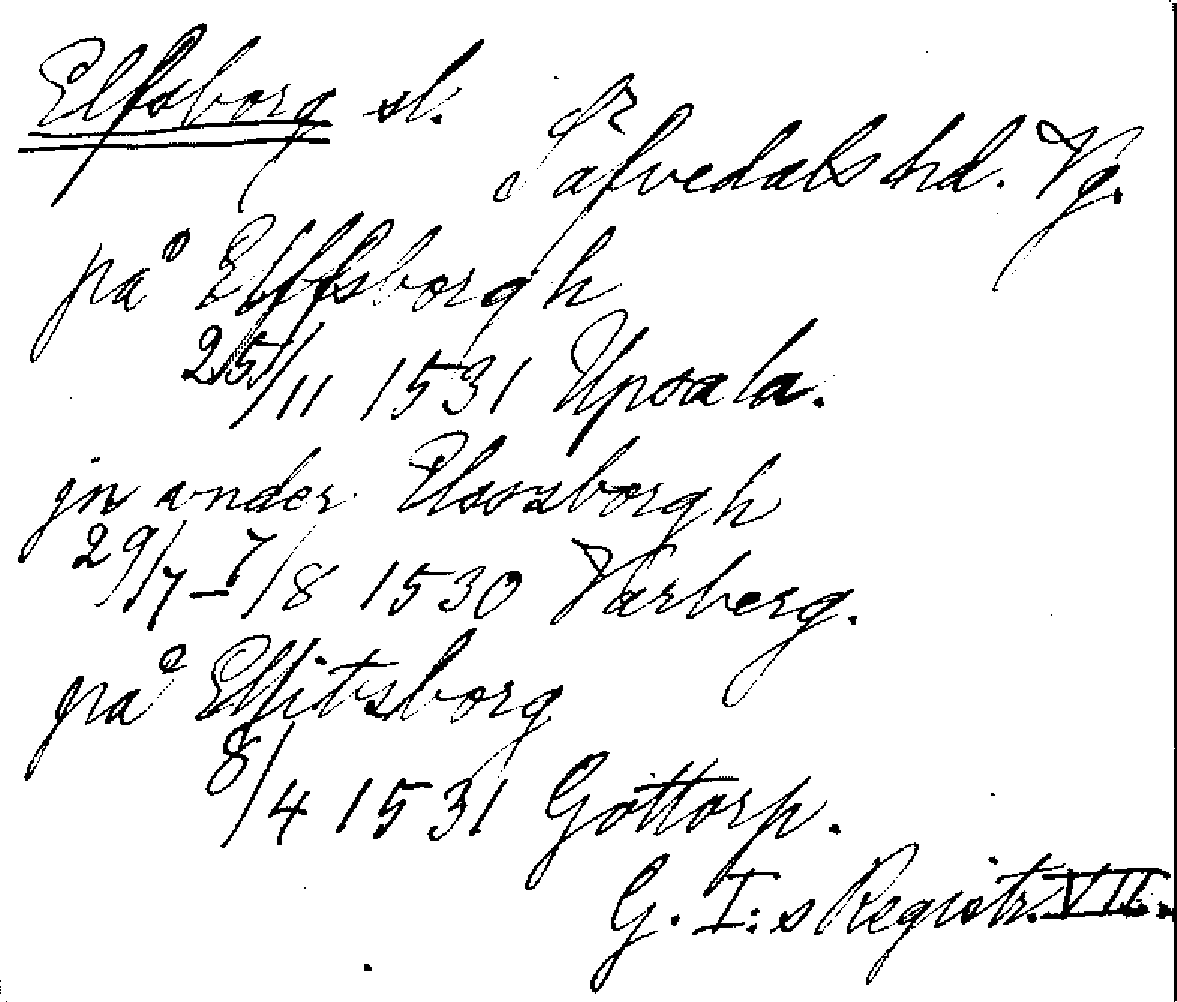 Elfsborg sl. Säfvedals hd. Vg.
på Elffsborgh
25/11 1531 Upsala.
jn vnder Elssborgh
29/7–7/8 1530 Varberg.
på Elffitsborg
8/4 1531 Gottorp.
G. I:s Registr. VII.